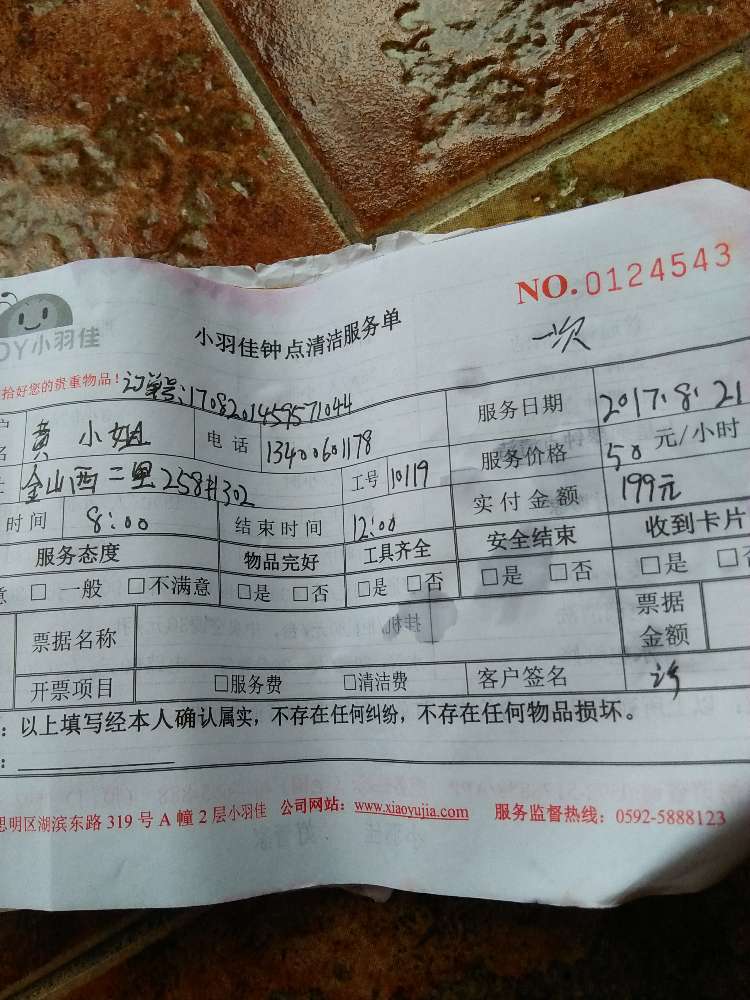 NO.0124543
OY小羽佳
小羽佳钟点清洁服务单
一次
拾好您的贵重物品！ 订单号:1708201459571044
服务日期 2017.8.21
名 黄小姐 电话 13400601178
服务价格 50 元/小时
金山西二里258#302 工号 10119
实付金额 199元
时间 8:00 结束时间 12:00
服务态度 物品完好 工具齐全 安全结束 收到卡片
意 □ 一般 □不满意 □是 □否 □是 □否 □是 □否 □是 □否
票据名称 票据金额
开票项目 □服务费 □清洁费 客户签名
：以上填写经本人确认属实，不存在任何纠纷，不存在任何物品损坏。
：
思明区湖滨东路 319 号 A 幢 2 层小羽佳 公司网站：www.xiaoyujia.com 服务监督热线：0592-5888123